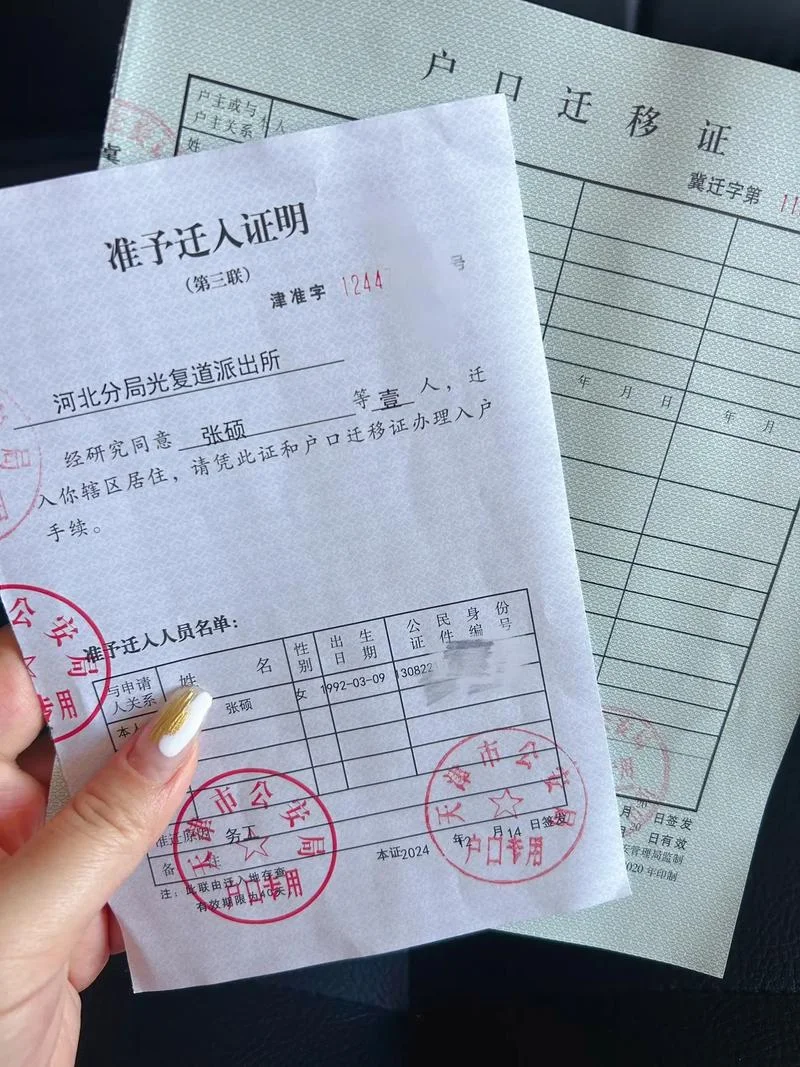 户口迁移证
冀迁字第 11
户主或与
户主关系
姓
年 月 日
年 月
日签发
月 日有效
2020年印制
准予迁入证明
(第三联)
津准字 1244 号
河北分局光复道派出所
经研究同意 张硕 等 壹 人，迁
入你辖区居住，请凭此证和户口迁移证办理入户
手续。
准予迁入人员名单：
与申请人关系 姓名 性别 出生日期 公民身份证件编号
本人 张硕 女 1992-03-09 130822
准迁原因 务工
备注
本证2024年2月14日签发
注：此联由迁入地存查
有效期限为40天
公安局
专用
天津市公安局
户口专用
天津市公安局
户口专用